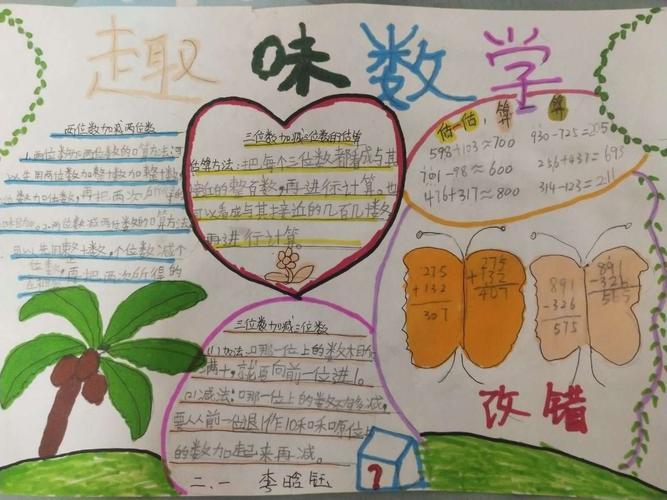 趣味数学
两位数加减两位数
1.两位数加两位数的口算方法:可
以先用两位数加整十数,再把两次所得的
2.两位数减两位数的口算方法
可以先用整十数,个位数减个
位数,再把两次所得的
三位数加减三位数的估算
估算方法:把每个三位数都看成与其
接近的整百数,再进行计算。也
可以看成与其接近的几百几十数
再进行计算。
估一估,算一算
598+123≈700
701-98≈600
476+317≈800
930-725=205
256+437=693
314-123=211
275
+132
307
275
+132
407
891
-326
575
891
-326
565
改错
三位数加减三位数
(1)加法:哪一位上的数相加
满十,就要向前一位进1。
(2)减法:哪一位上的数不够减,
要从前一位退1作10和原位上
的数加起来再减。
?
二、一 李晗钰